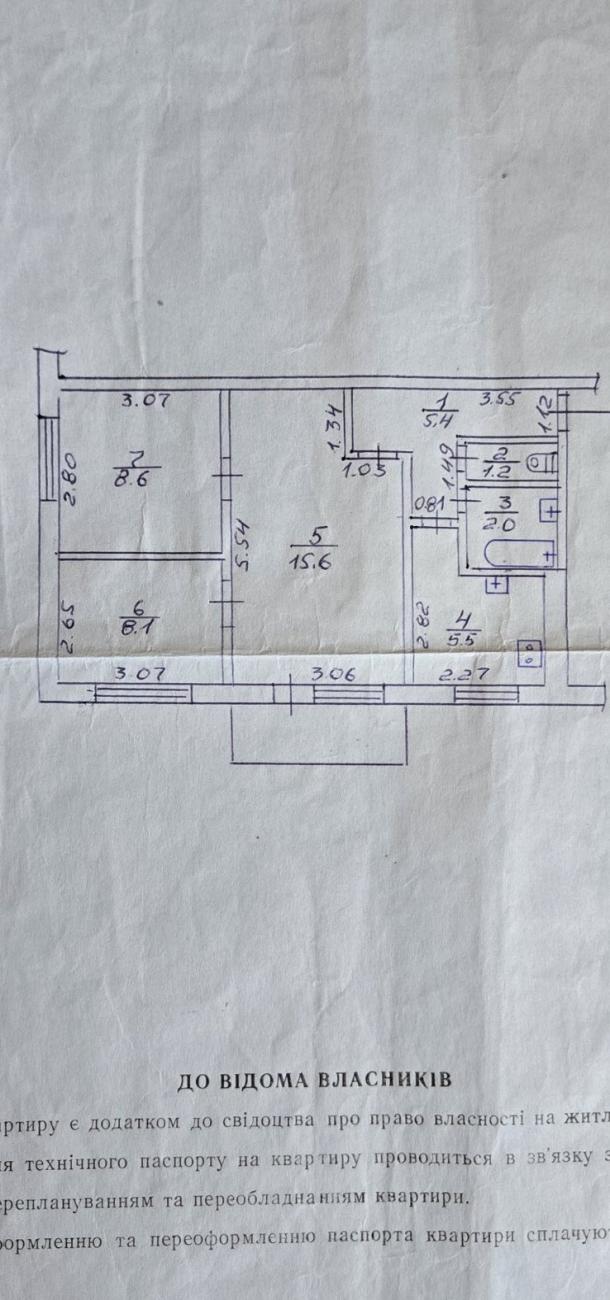 3.07
1
5.4
3.55
1.12
1.34
1.03
1.49
2
1.2
2.80
7
8.6
0.81
3
2.0
5.54
5
15.6
2.65
6
8.1
2.82
4
5.5
3.07
3.06
2.27
ДО ВІДОМА ВЛАСНИКІВ
артиру є додатком до свідоцтва про право власності на житл
ня технічного паспорту на квартиру проводиться в зв'язку з
ереплануванням та переобладнанням квартири.
формленню та переоформленню паспорта квартири сплачую